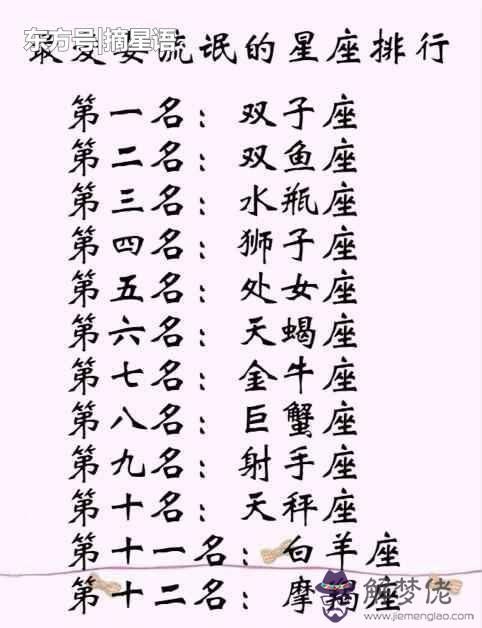 东方号|摘星语
最爱耍流氓的星座排行
第一名：双子座
第二名：双鱼座
第三名：水瓶座
第四名：狮子座
第五名：处女座
第六名：天蝎座
第七名：金牛座
第八名：巨蟹座
第九名：射手座
第十名：天秤座
第十一名：白羊座
第十二名：摩羯座
解梦佬
www.jiemenglao.com